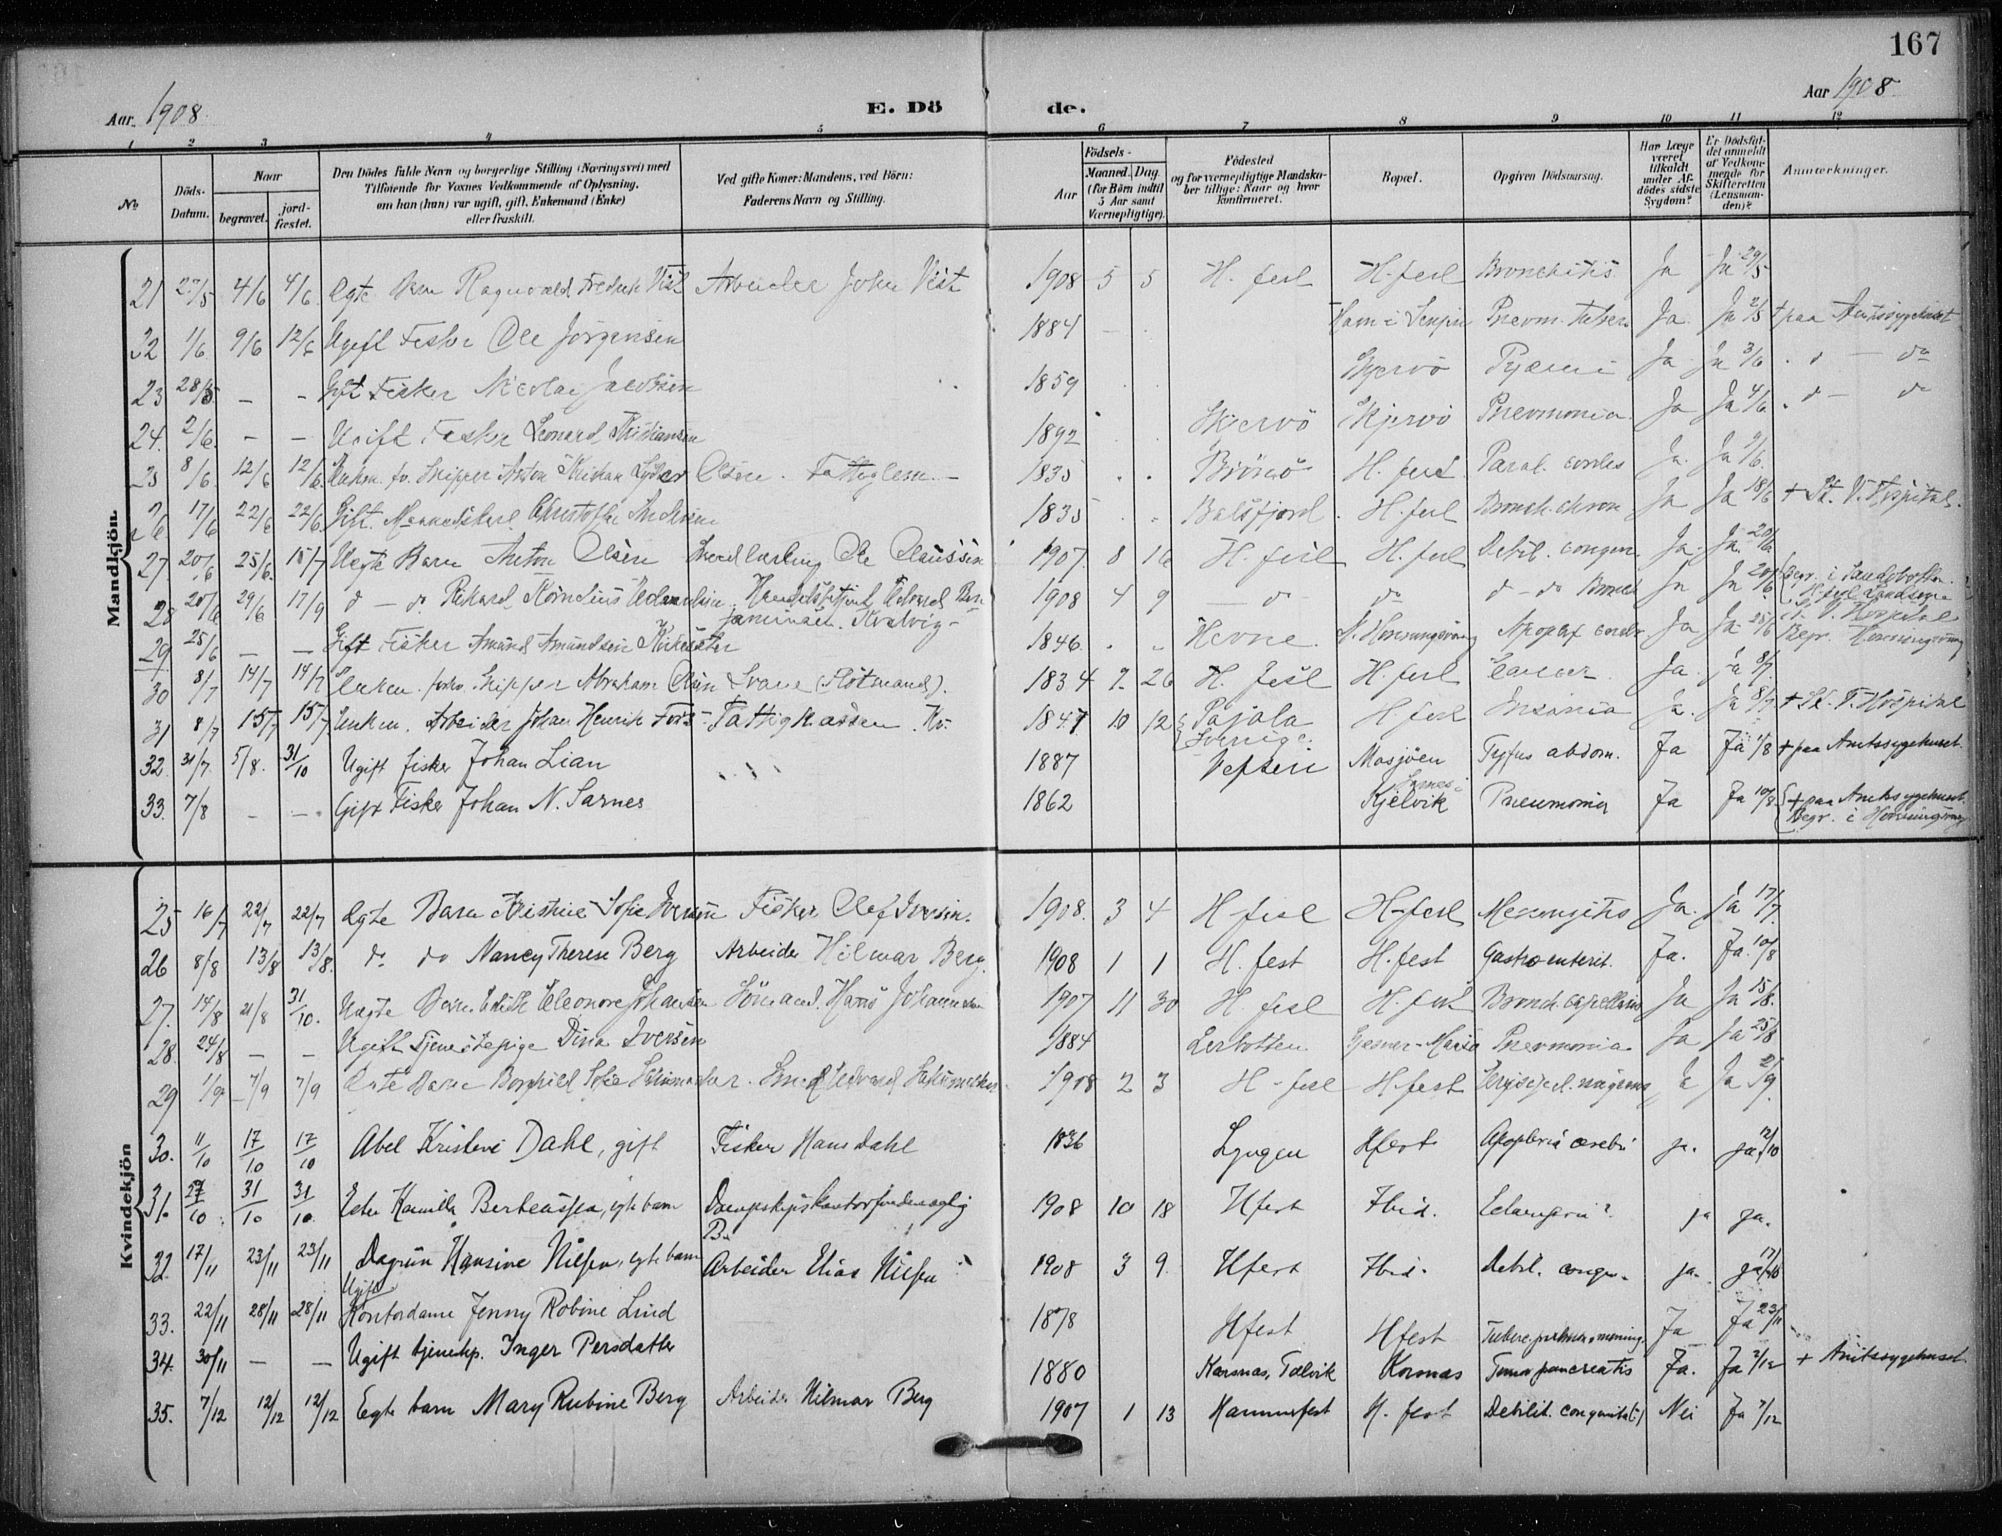 167
Aar 1908.
E. Dö de.
Aar 1908
1 2 3 4 5 6 7 8 9 10 11 12
No
Döds-Datum.
Naar
begravet.
jord-fæstet.
Den Dödes fulde Navn og borgerlige Stilling (Næringsvei) med Tilföiende for Voxnes Vedkommende af Oplysning, om han (hun) var ugift, gift, Enkemand (Enke) eller fraskilt.
Ved gifte Koner: Mandens, ved Börn: Faderens Navn og Stilling.
Födsels-
Aar
Maaned. Dag.
(for Börn indtil 5 Aar samt Værnepligtige).
Födested og for værnepligtige Mandskaber tillige: Naar og hvor konfirmeret.
Bopæl.
Opgiven Dödsaarsag.
Har Læge været tilkaldt under Afdödes sidste Sygdom?
Er Dödsfaldet anmeldt af Vedkommende for Skifteretten (Lensmanden)?
Anmærkninger.
Mandkjön.
21 27/5 4/6 4/6 Ægte Barn Ragnvald Fredrik Vist Arbeider John Vist 1908 5 5 H. fest H. fest Bronchitis Ja Ja 29/5
32 1/6 9/6 12/6 Ugift Fisker Ole Jörgensen 1884 Pnevm. Ja Ja 2/5 + paa Amtssygehuset
23 28/5 — — Gift Fisker Nicolai Jacobsen 1859 Skjervö Pyæmi Ja Ja 3/6 do
24. 2/6 — — Ugift Fisker Leonard Kristiansen 1892 Skjervö Skjervö Pnevmonia Ja Ja 4/6 do
25 8/6 12/6 12/6 Enkem. fv. Skipper Anton Kristian Olsen. Fattiglem. — 1835 H. fest Paral. cordis Ja. Ja 9/6.
26 17/6 22/6 22/6 Gift. Christoffer 1835 Balsfjord H. fest Bronch. chron Ja Ja 18/6 + St. V. Hospital.
27 20/6 25/6 15/7 Uegte Barn Anton Olsen Ole Claussen 1907 8 16 H. fest H. fest Debil. congen. Ja. Ja. 20/6
28 20/6 29/6 17/9 d — do Rikard Kornelius Handelsbetjent Edvard Benjaminsen Kvalvig — 1908 4 9 — do do d — do Bronch Ja Ja 20/6 Begr. i
29 25/6 — — Gift Fisker Amund Amundsen 1846. Hevne. Apoplex cerebr. Ja Ja 25/6 St. V. Hospital Begr. Honningsvaag
30 8/7 14/7 14/7 Enkem. forhv. Skipper Abraham Olsen Svane (Slötmand). 1834 7 26 H. fest H. fest Cancer. Ja. Ja 8/7
31 8/7 15/7 15/7 Enkem. Arbeider Johan Henrik Fors Fattigkassen 1847 10 12 Pajala Sverige. H fest Insania Ja. Ja 8/7 + St. V. Hospital
32. 31/7. 5/8. 31/10 Ugift fisker Johan Lian 1887 Vefsen Mosjöen Tyfus abdom. Ja Ja 1/8 + paa Amtssygehuset.
33. 7/8 — — Gift Fisker Johan N. Sarnes 1862 Sarnes i Kjelvik Pneumonia Ja Ja 10/8 + paa Amtssygehuset. Begr. i Honningsvaag
Kvindekjön
25 16/7 22/7 22/7 Ægte Barn Kristine Sofie Iversen Fisker Olef Iversen. 1908. 3 4 H fest H-fest Meningitis Ja. Ja 17/7
26 8/8 13/8 13/8. do do Nancy Therese Berg Arbeider Hilmar Berg. 1908 1 1 H. fest H. fest Gastroenterit. Ja. Ja. 10/8
27. 14/8 21/8 31/10. Uægte Barn Edith Eleonore Johansen Sömand. Hans Johannesen 1907 11 30 H. fest H. fest Bronch. capillaris Ja Ja 15/8.
28. 24/8 — — Ugift Tjenestepige Dina Iversen 1884 Lerbotten Pnevmonia Ja Ja 25/8
29 1/9 7/9 7/9 Ægte Barn Borghild Sofie Smed Edvard 1908 2 3 H-fest H-fest Ja Ja 2/9.
30. 11/10 17/10 17/10 Abel Kristine Dahl, gift Fisker Hans Dahl 1836 Lyngen Hfest Apoplexia cerebri ja. ja. 12/10
31. 27/10 31/10 31/10. Ester Kamilla Berteussen, egte barn Dampskipskontorfuldmægtig B. 1908 10 18 Hfest Ibid. Eclampsia? ja ja.
32. 17/11 23/11 23/11 Dagrun Hansine Nilsen, egte barn Arbeider Elias Nilsen 1908 3 9 Hfest Ibid. Debil. congen. ja. ja
33. 22/11 28/11 28/11 Ugift Kontordame Jenny Robine Lund 1878 Hfest Hfest Ja Ja 23/11
34. 30/11 — — Ugift tjenestep. Inger Persdatter 1880 Korsnæs, Talvik Korsnæs Tumor pancreatis Ja. Ja 2/12 + Amtssygehuset
35. 7/12 12/12 12/12 Egte barn Mary Rubine Berg Arbeider Hilmar Berg 1907 1 13 Hammerfest H. fest Debilit. congenita(?) Nei Ja 7/12